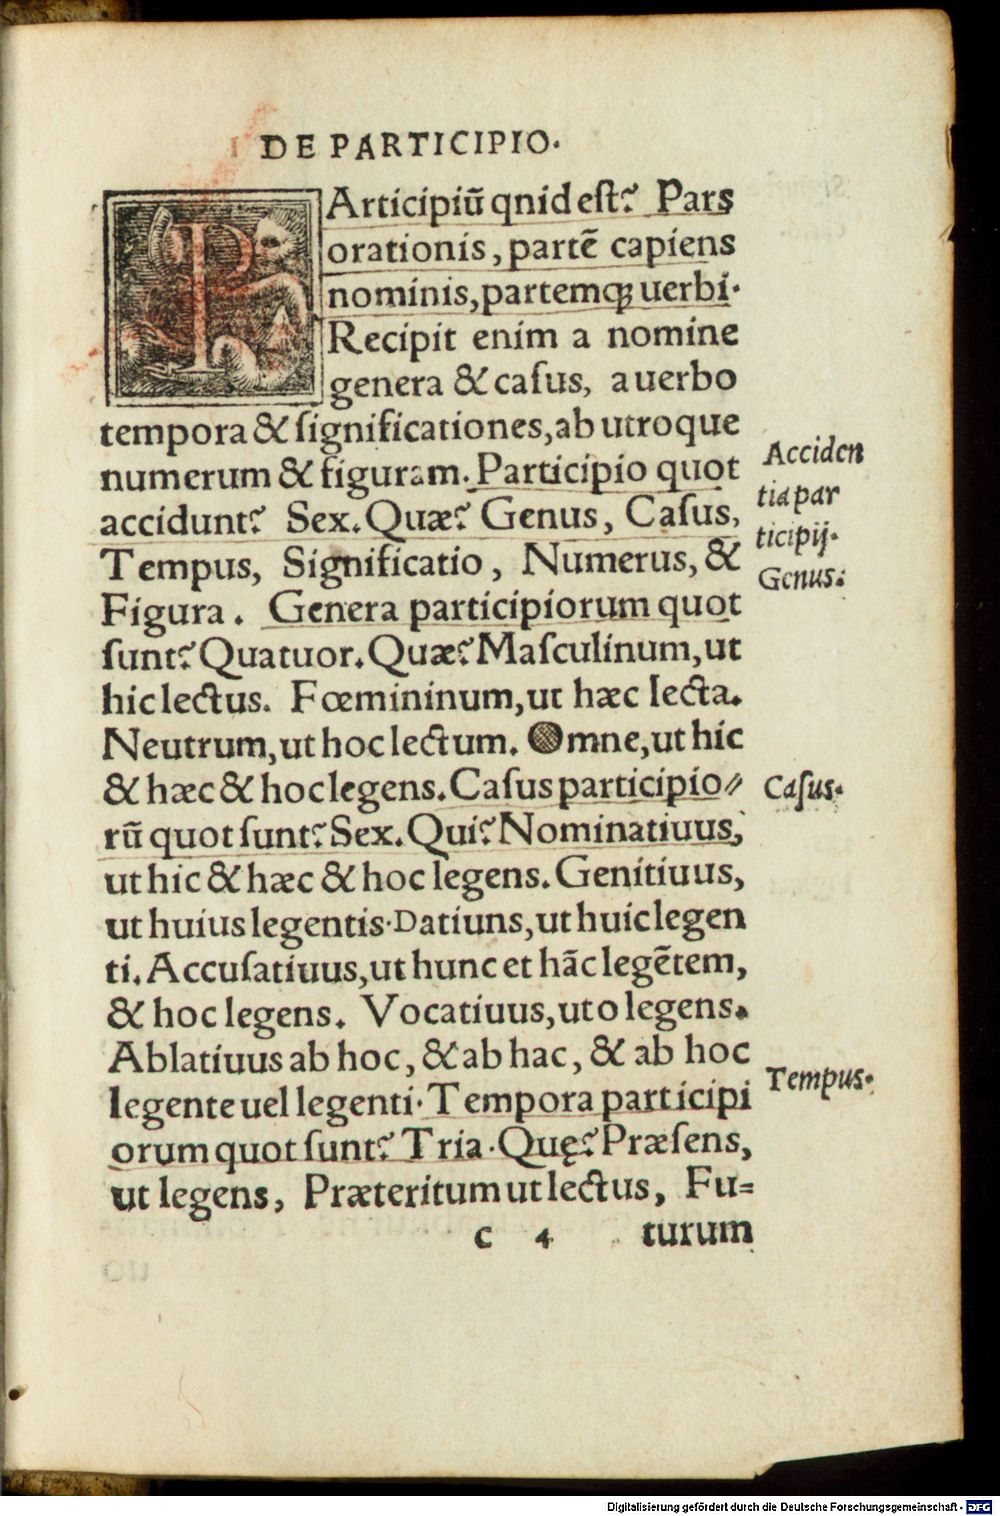 DE PARTICIPIO.
PArticipiũ qnid est? Pars
orationis, partẽ capiens
nominis, partemq́; uerbi.
Recipit enim a nomine
genera & casus, a uerbo
tempora & significationes, ab utroque
numerum & figuram. Participio quot
accidunt? Sex. Quæ? Genus, Casus,
Tempus, Significatio, Numerus, &
Figura. Genera participiorum quot
sunt? Quatuor. Quæ? Masculinum, ut
hic lectus. Fœmininum, ut hæc lecta.
Neutrum, ut hoc lectum. Omne, ut hic
& hæc & hoc legens. Casus participio⸗
rũ quot sunt? Sex. Qui? Nominatiuus,
ut hic & hæc & hoc legens. Genitiuus,
ut huius legentis. Datiuns, ut huic legen
ti. Accusatiuus, ut hunc et hãc legẽtem,
& hoc legens. Vocatiuus, ut o legens.
Ablatiuus ab hoc, & ab hac, & ab hoc
legente uel legenti. Tempora participi
orum quot sunt? Tria. Quę? Præsens,
ut legens, Præteritum ut lectus, Fu=
C 4 turum
Acciden
tia par
ticipij.
Genus.
Casus.
Tempus.
Digitalisierung gefördert durch die Deutsche Forschungsgemeinschaft - DFG